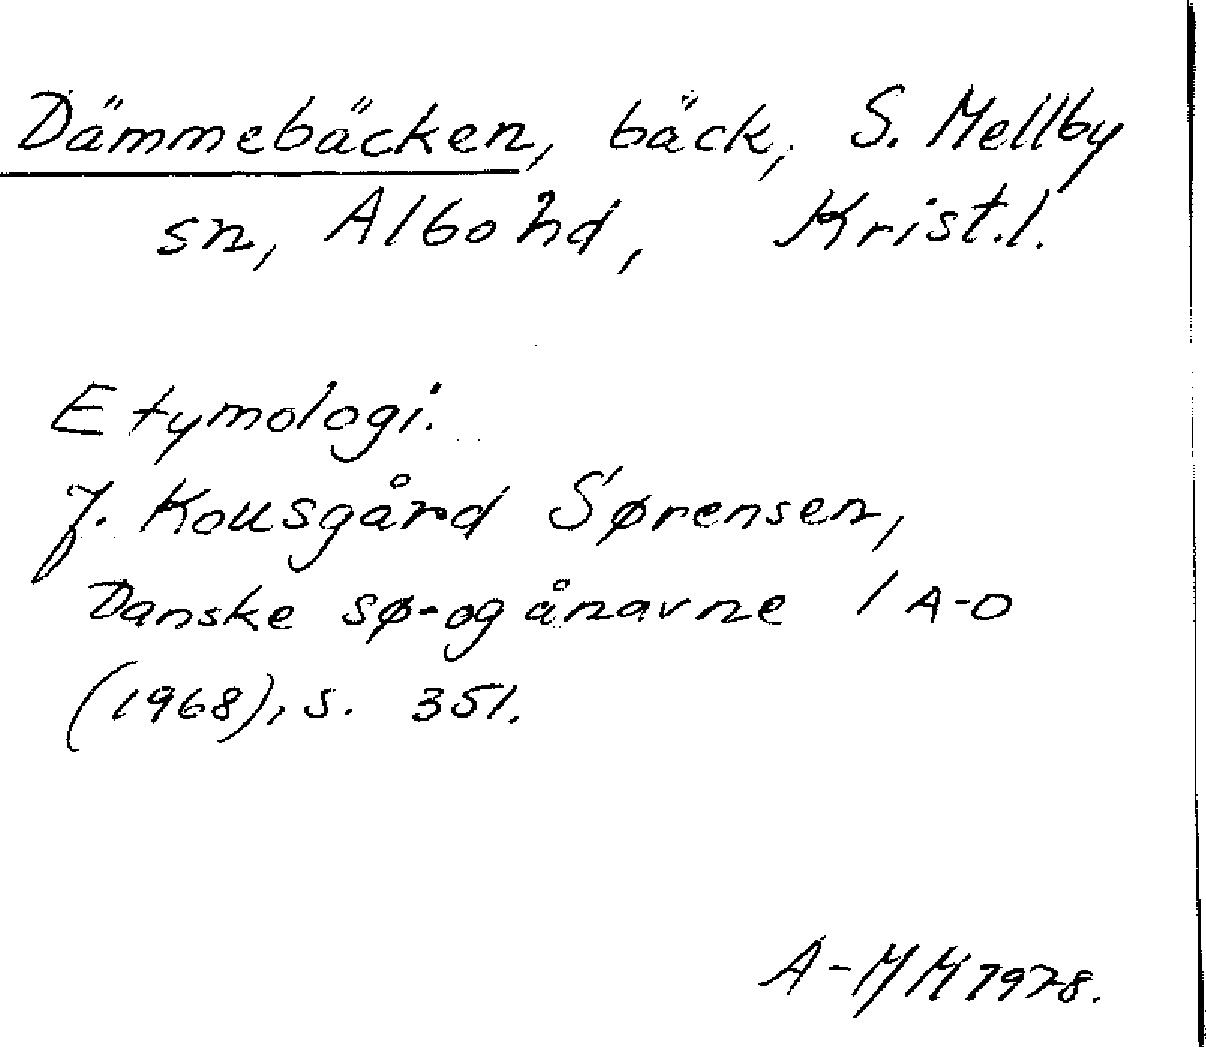 Dämmebäcken, bäck, S. Mellby
sn, Albo hd, Krist.l.
Etymologi.
J. Kousgård Sørensen,
Danske sø- og ånavne 1 A-D
(1968), s. 351.
A-MM 1978.